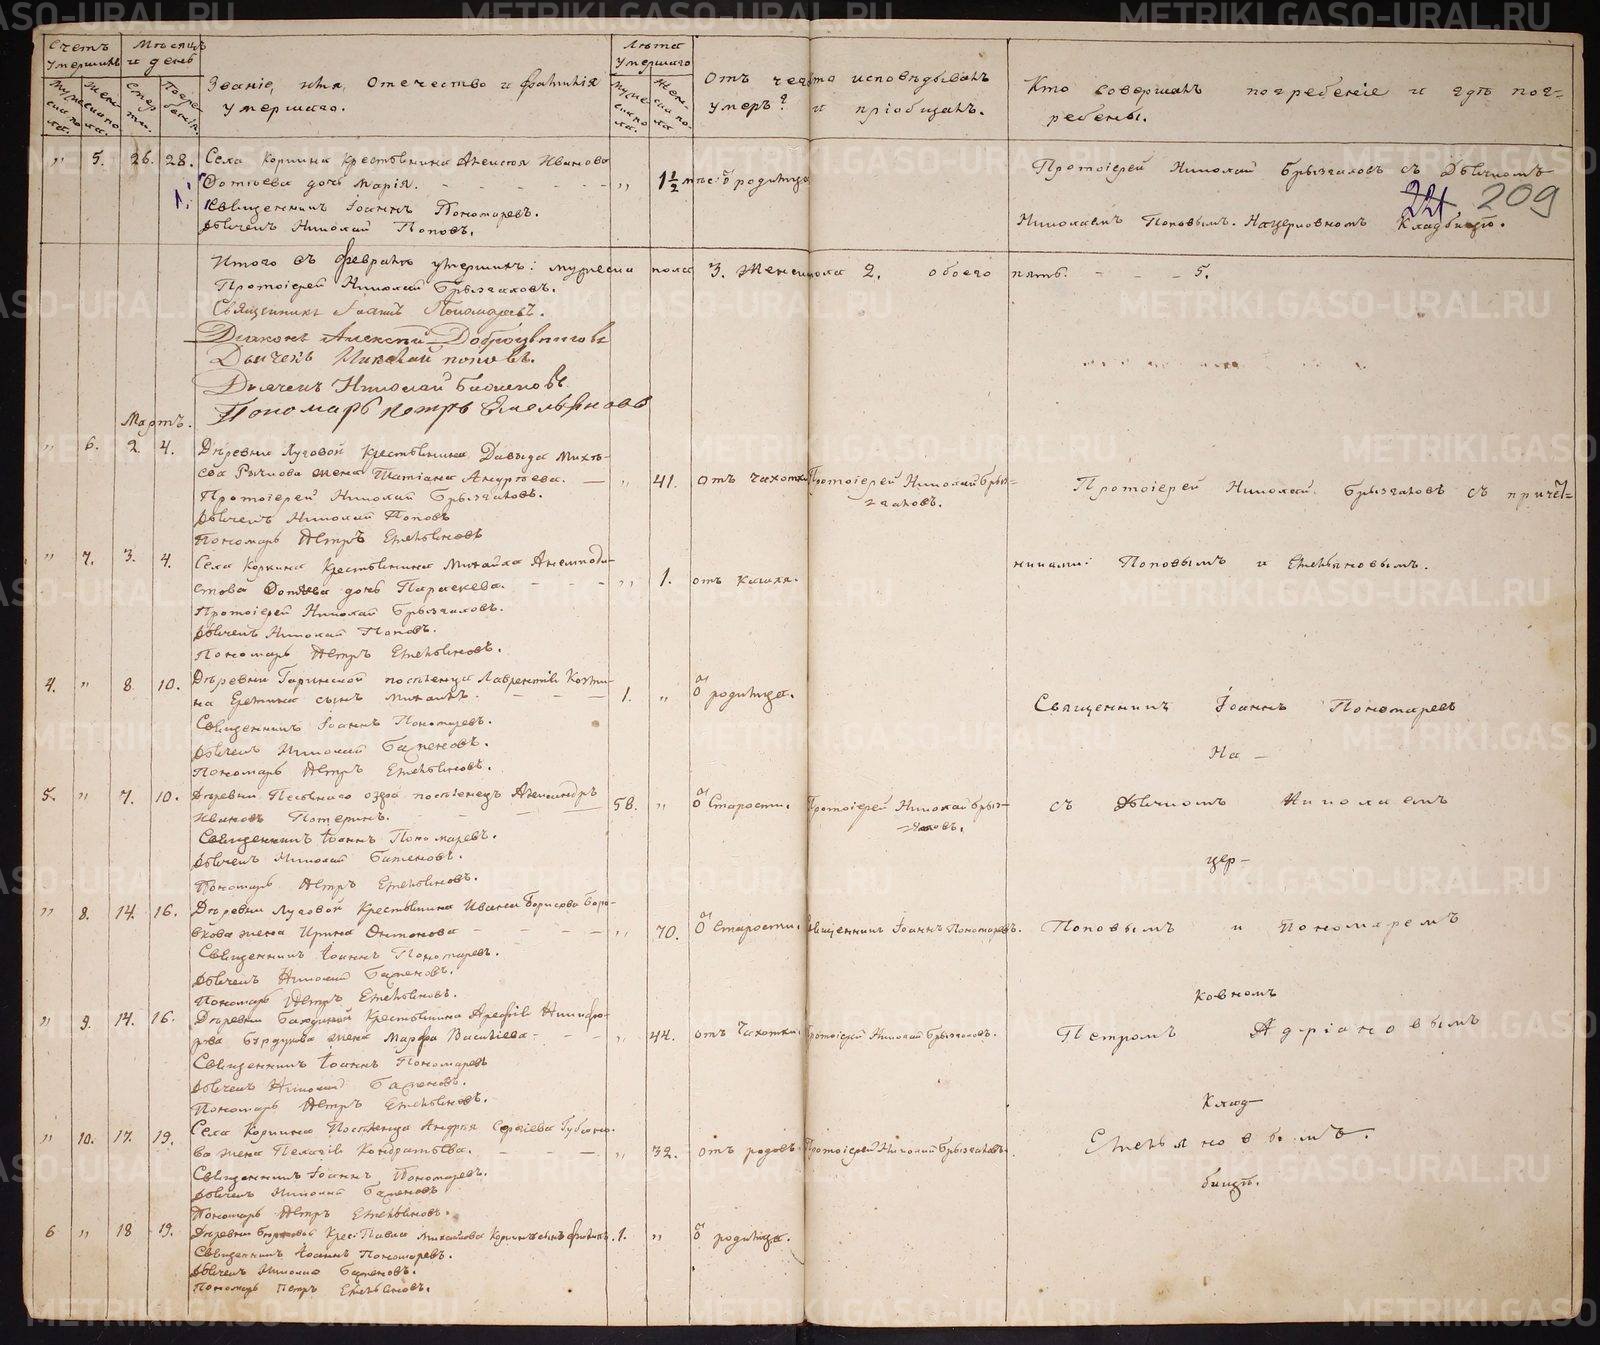 Счетъ умершихъ
Мѣсяцъ и день
Мужеска пола.
Женска пола.
Смерти.
Погребенія.
Званіе, имя, отечество и фамилія
умершаго.
Лѣта умершаго
Мужеска пола
Женска пола
Отъ чего умеръ?
Кто исповѣдывалъ и пріобщалъ.
Кто совершалъ погребеніе и гдѣ пог=
ребены.
" 5. 26. 28. Села Коркина крестьянина Алексѣя Иванова
Фотѣева дочь Марія. " 1½ мѣс. ѿ родимца
Священникъ Іоаннъ Пономаревъ.
Дьячекъ Николай Поповъ.
Протоіерей Николай Брызгаловъ съ Дьячкомъ
Николаемъ Поповымъ. На церковномъ кладбищѣ.
221 209
Итого въ Февралѣ умершихъ: мужеска пола 3. Женск. пола 2. обоего пять. - - - 5.
Протоіерей Николай Брызгаловъ.
Священникъ Іоаннъ Пономаревъ.
Діаконъ Алексѣй
Дьячекъ Николай Поповъ.
Дьячекъ Николай Баженовъ
Пономарь Петръ Емельяновъ
Мартъ.
" 6. 2. 4. Деревни Луговой крестьянина Давыда
Рычкова жена Татіана - " 41. отъ чахотки Протоіерей Николай Брыз=
галовъ.
Протоіерей Николай Брызгаловъ.
Дьячекъ Николай Поповъ
Пономарь Петръ Емельяновъ
Протоіерей Николай Брызгаловъ съ причет=
никами: Поповымъ и Емельяновымъ.
" 7. 3. 4. Села Коркина крестьянина Михайла Анемподи-
стова Фотѣева дочь Параскева. " 1. отъ кашля.
Протоіерей Николай Брызгаловъ.
Дьячекъ Николай Поповъ.
Пономарь Петръ Емельяновъ.
4. " 8 10. Деревни Гаринской поселенца Лаврентія Козми-
на сынъ Михаилъ. 1. " ѿ родимца.
Священникъ Іоаннъ Пономаревъ.
Дьячекъ Николай Баженовъ.
Пономарь Петръ Емельяновъ.
Священникъ Іоаннъ Пономаревъ
На -
5. " 7. 10. Деревни озера поселенецъ Александръ
Ивановъ 58. " ѿ Старости. Протоіерей Николай Брыз-
галовъ.
Священникъ Іоаннъ Пономаревъ.
Дьячекъ Николай Баженовъ.
Пономарь Петръ Емельяновъ.
съ Дьячкомъ Николаемъ
цер-
" 8. 14. 16. Деревни Луговой крестьянина Ивана Борисова Боро-
вкова жена Ирина Антонова " 70. ѿ Старости. Священникъ Іоаннъ Пономаревъ.
Священникъ Іоаннъ Пономаревъ.
Дьячекъ Николай Баженовъ.
Пономарь Петръ Емельяновъ.
Поповымъ и Пономаремъ
ковномъ
" 9. 14. 16. Деревни крестьянина Арефія Никифо-
рова Бурдукова жена Марфа Васильева - " 44. отъ Чахотки. Протоіерей Николай Брызгаловъ.
Священникъ Іоаннъ Пономаревъ
Дьячекъ Николай Баженовъ.
Пономарь Петръ Емельяновъ.
Петромъ Адріановымъ
Клад-
" 10. 17. 19. Села Коркина Поселенца Андрея Сергіева
жена Пелагія Кондратьева. " 32. отъ родовъ. Протоіерей Николай Брызгаловъ.
Священникъ Іоаннъ Пономаревъ.
Дьячекъ Николай Баженовъ
Пономарь Петръ Емельяновъ.
Емельяновымъ.
бищѣ.
6 " 18 19. Деревни Крес. Павла Михайлова 1. " ѿ родимца.
Священникъ Іоаннъ Пономаревъ.
Дьячекъ Николай Баженовъ.
Пономарь Петръ Емельяновъ.
METRIKI.GASO-URAL.RU